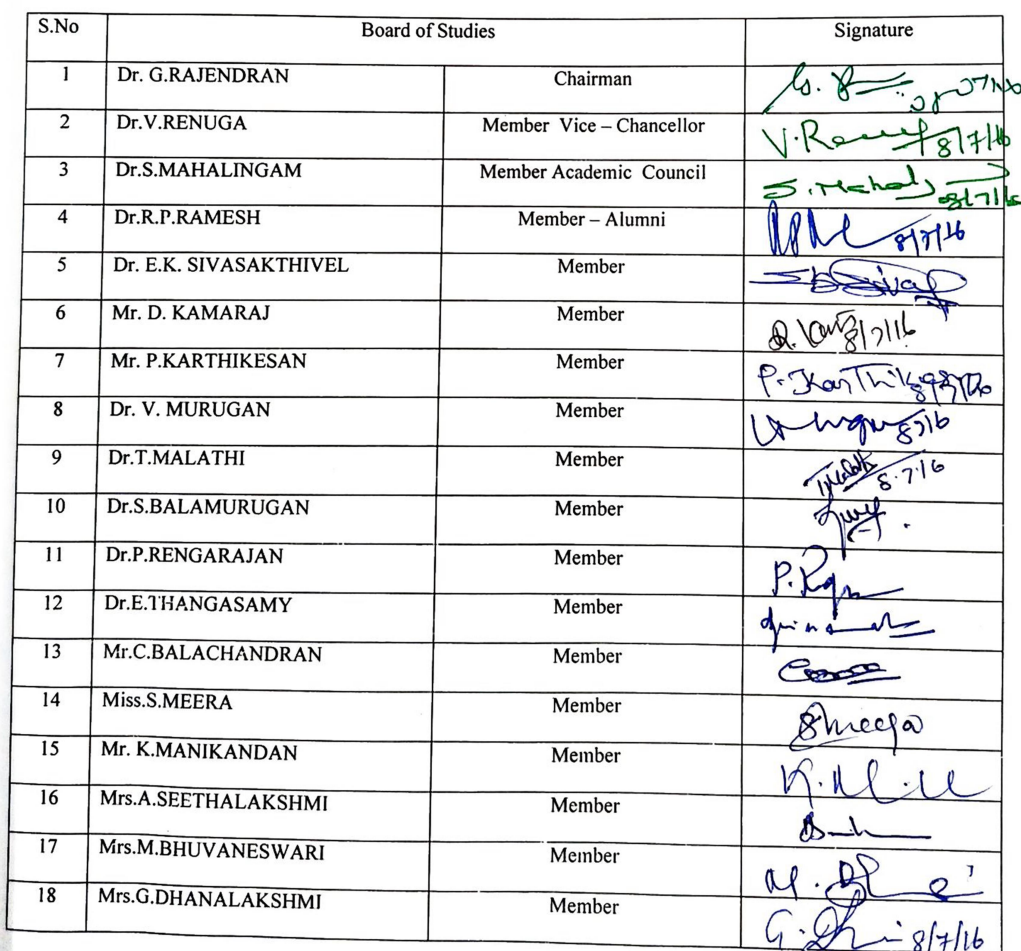 S.No Board of Studies Signature
1 Dr. G.RAJENDRAN Chairman
2 Dr.V.RENUGA Member Vice – Chancellor 8/7/16
3 Dr.S.MAHALINGAM Member Academic Council 8/7/16
4 Dr.R.P.RAMESH Member – Alumni 8/7/16
5 Dr. E.K. SIVASAKTHIVEL Member
6 Mr. D. KAMARAJ Member 8/7/16
7 Mr. P.KARTHIKESAN Member
8 Dr. V. MURUGAN Member
9 Dr.T.MALATHI Member 8.7.16
10 Dr.S.BALAMURUGAN Member
11 Dr.P.RENGARAJAN Member
12 Dr.E.THANGASAMY Member
13 Mr.C.BALACHANDRAN Member
14 Miss.S.MEERA Member
15 Mr. K.MANIKANDAN Member
16 Mrs.A.SEETHALAKSHMI Member
17 Mrs.M.BHUVANESWARI Member
18 Mrs.G.DHANALAKSHMI Member 8/7/16